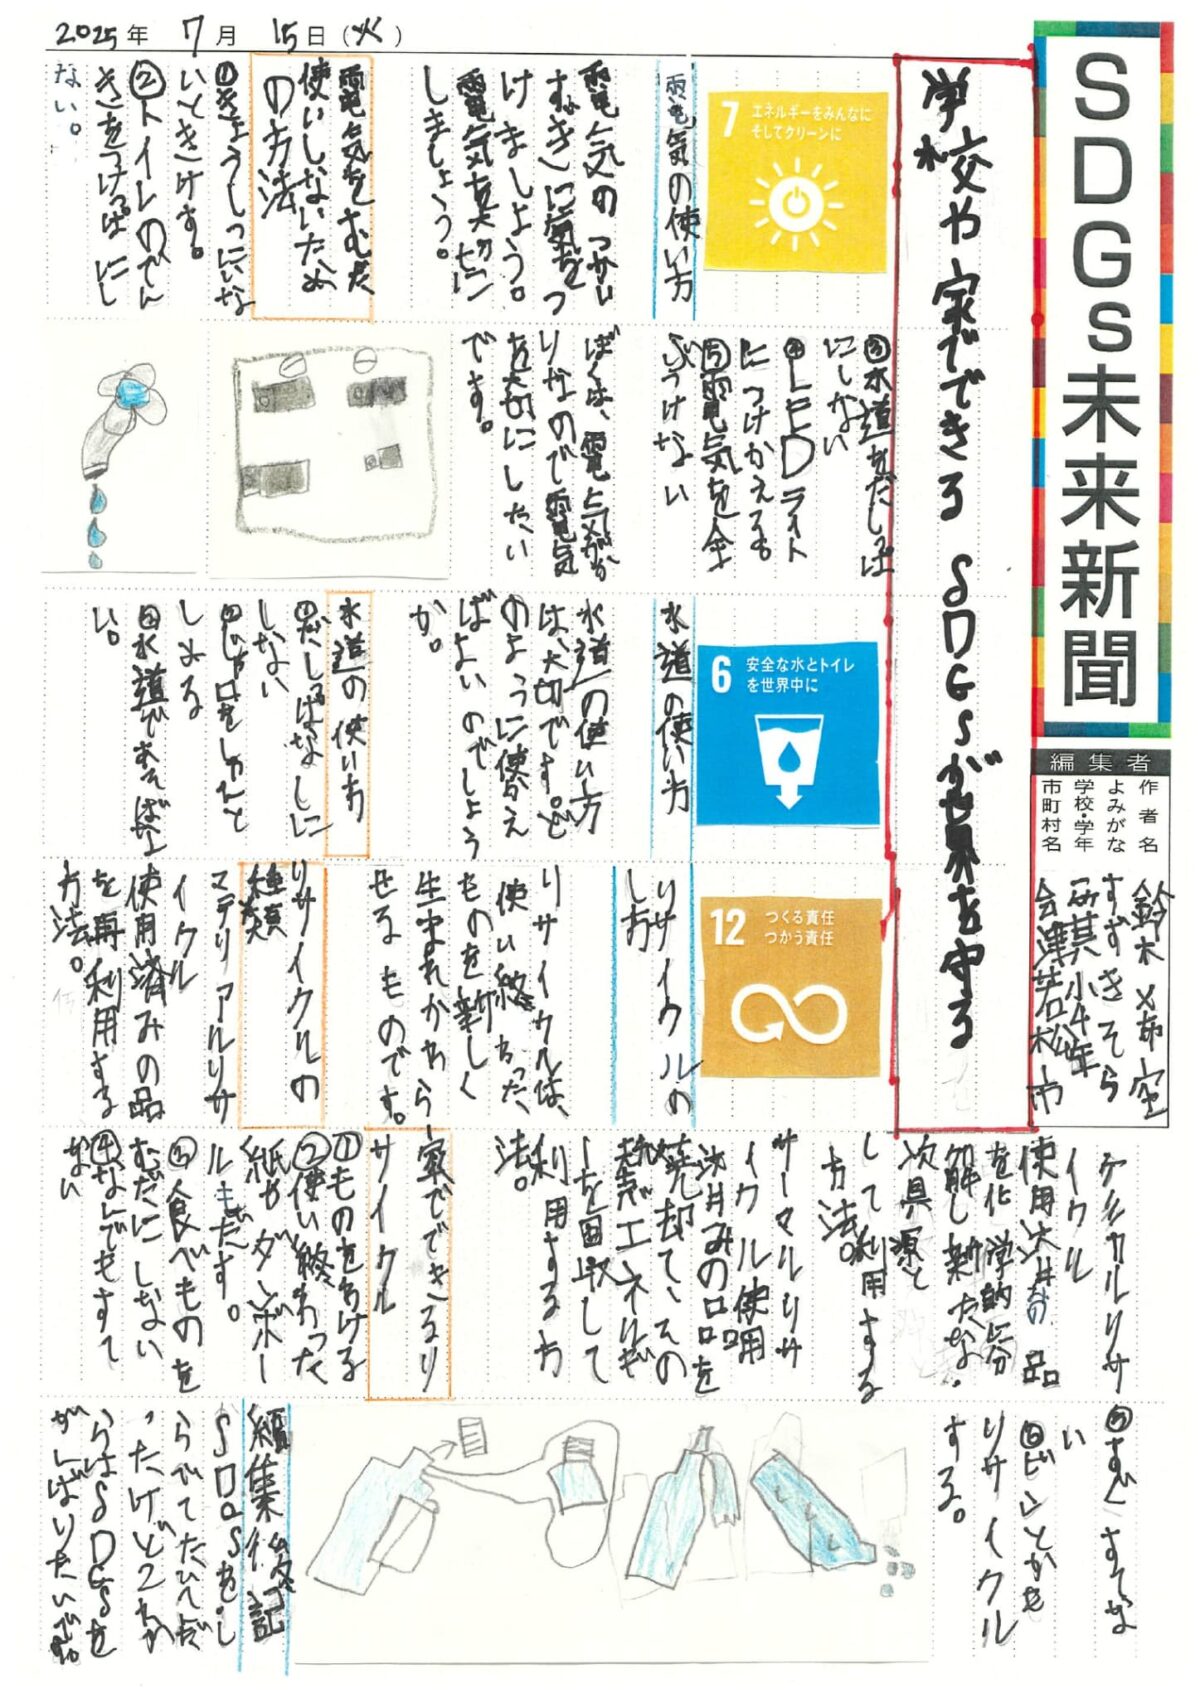 2025年 7月 15日(火)
SDGs未来新聞
編集者
作者名
よみがな
学校・学年
市町村名
鈴木 希空
すずきそら
4年
会津若松市
学校や家でできるSDGsが世界を守る
7 エネルギーをみんなに
そしてクリーンに
電気の使い方
電気のつかい
すぎに気をつ
けましょう。
電気を大切に
しましょう。
電気をむだ
使いしないため
の方法
①きょうしつにいな
いときけす。
②トイレのでん
きをつけっぱにし
ない。
③水道をだしっぱ
にしない
④LEDライト
につけかえる
⑤電気を全
ぶつけない
ぼくは、電気がか
りなので電気
を大切にしたい
です。
6 安全な水とトイレ
を世界中に
水道の使い方
水道の使い方
は、大切です。ど
のように使え
ばよいのでしょう
か。
水道の使い方
①だしっぱなしに
しない
②じゃ口をしゃんと
しめる
③水道であそばな
い。
12 つくる責任
つかう責任
リサイクルの
し方
リサイクルは、
使い終わった、
ものを新しく
生まれかわら
せるものです。
リサイクルの
種類
マテリアルリサ
イクル
使用済みの品
を再利用する
方法。
ケミカルリサ
イクル
使用済みの品
を化学的に分
解し新たな
資源と
して利用する
方法。
サーマルリサ
イクル使用
済みの品を
焼却て、その
熱エネルギ
ーを回収して
利用する方
法。
家でできるリ
サイクル
①ものをわける
②使い終わった
紙やダンボー
ルもだす。
③食べものを
むだにしない
④なんでもすて
ない
⑤すぐすてな
い
⑥ビンとかを
リサイクル
する。
編集後記
SDGsをし
らべてたいへんだ
ったけどこれか
らはSDGsを
がんばりたいです。